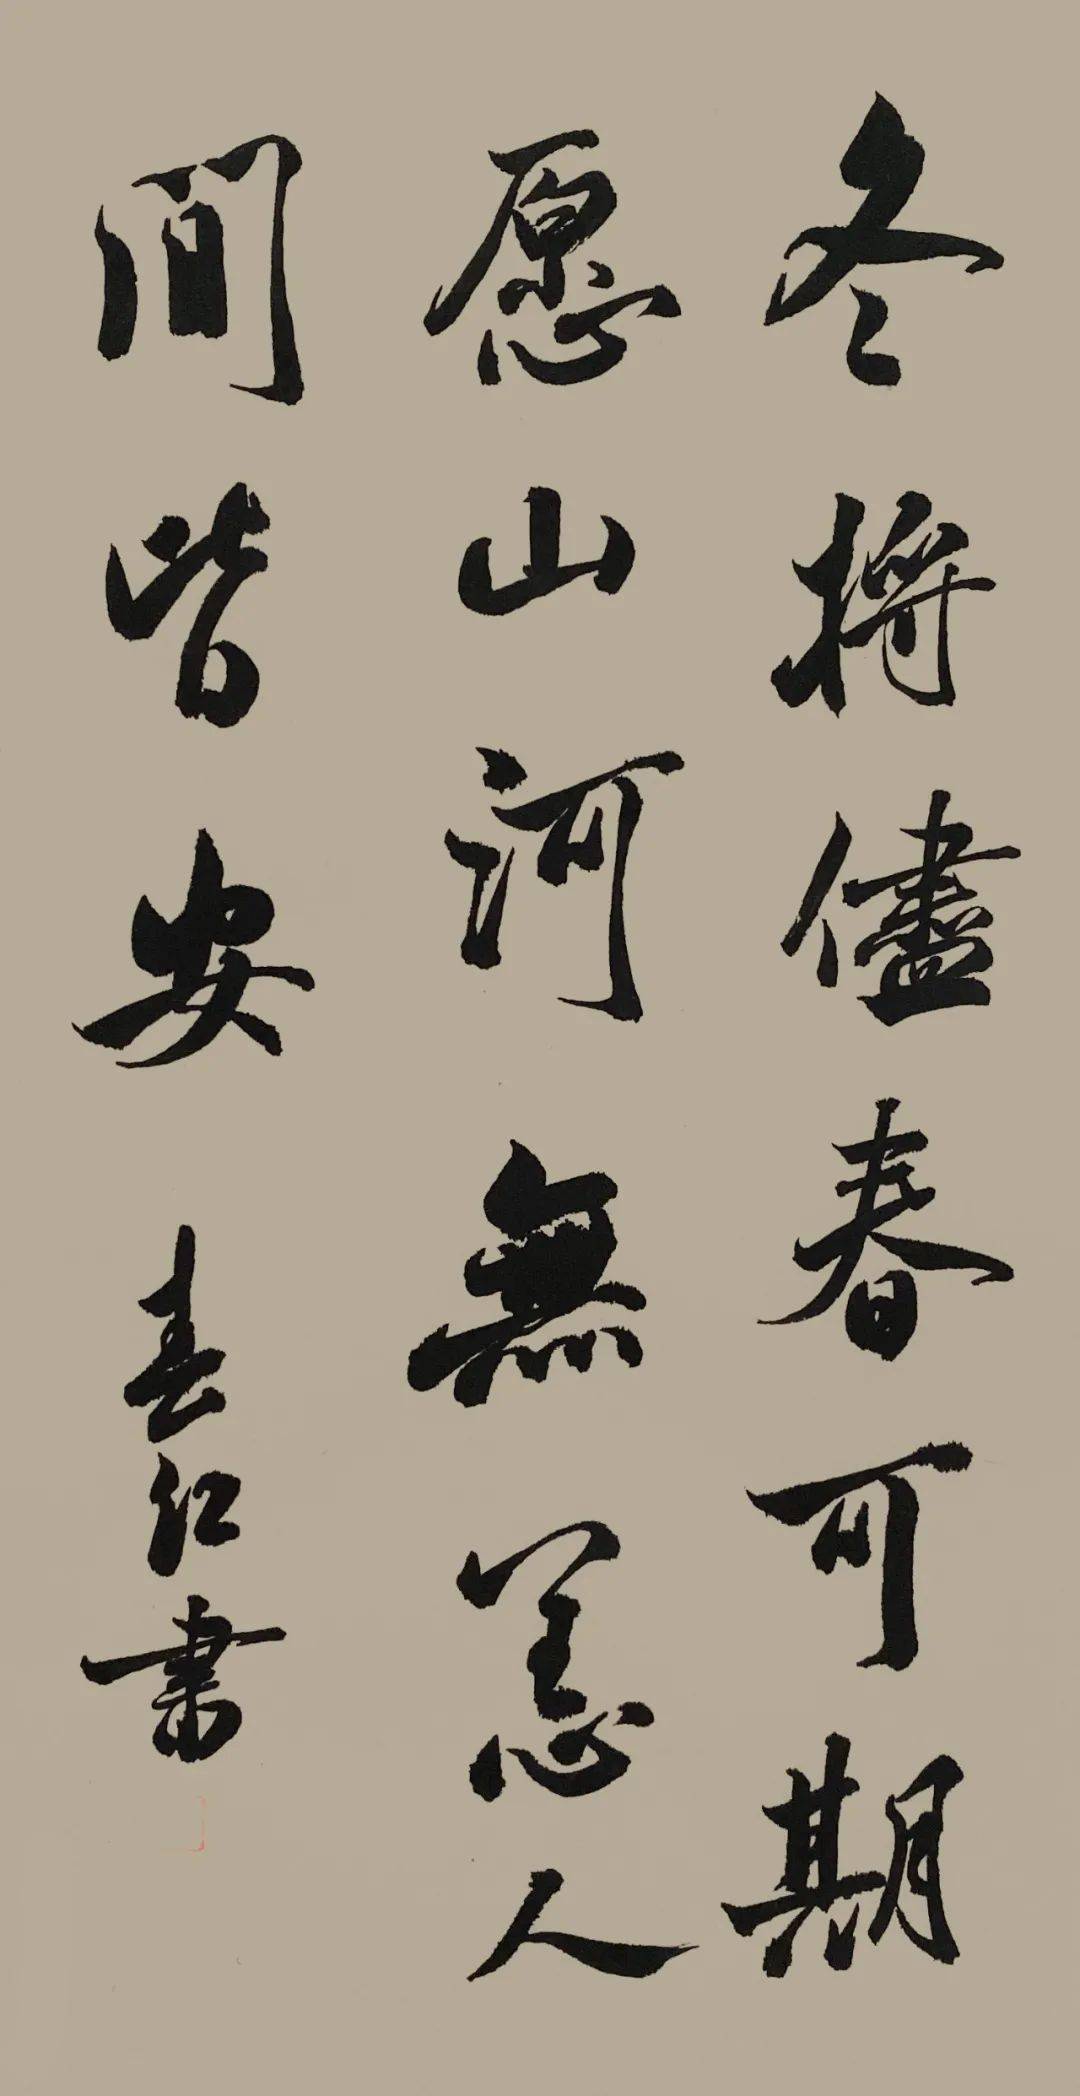 冬将儘春可期
愿山河無恙人
間皆安
春仁書